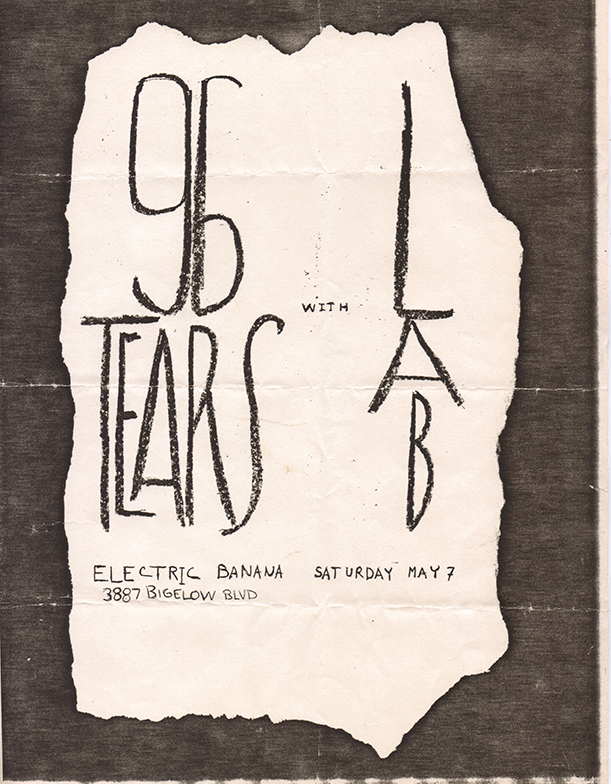 96
TEARS
WITH
LAB
ELECTRIC BANANA SATURDAY MAY 7
3887 BIGELOW BLVD